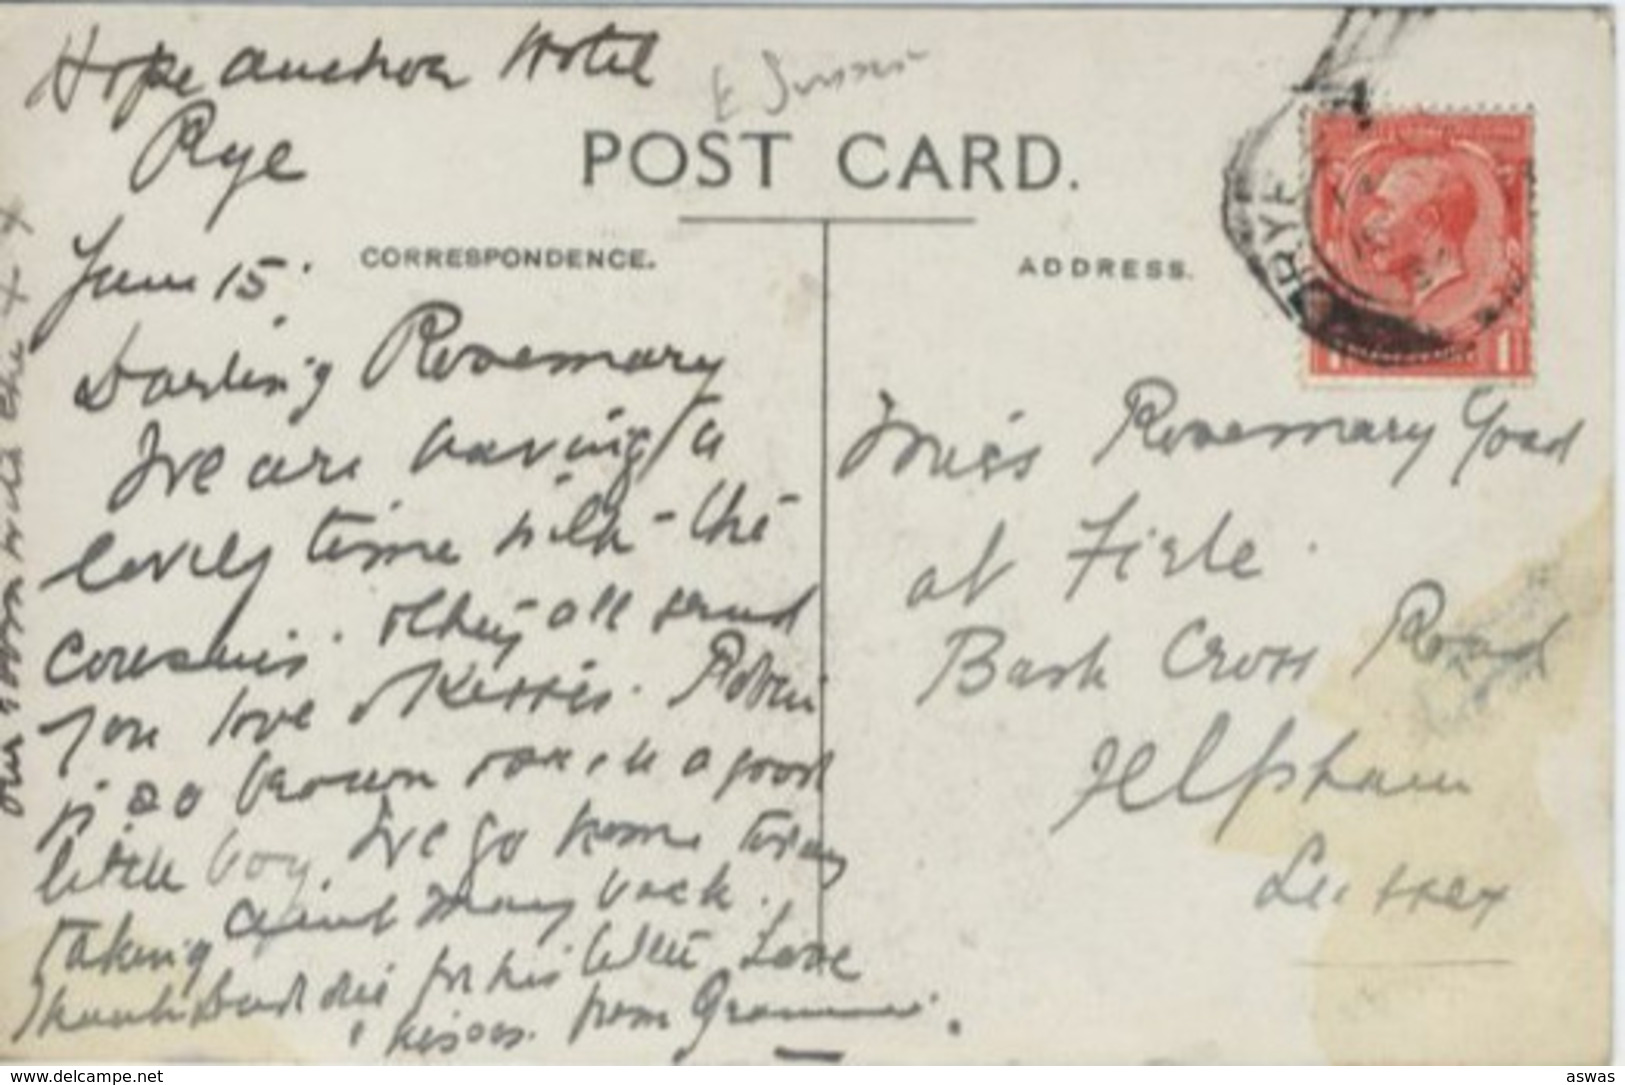 Hope Anchor Hotel
Rye
June 15.
E Sussex
POST CARD.
CORRESPONDENCE.
ADDRESS.
RYE
Darling Rosemary
We are having a
lovely time with - the
cousins. They all send
you love & kisses. Robin
is so brown & a good
little boy. We go home today
taking Aunt Mary back.
Thank Daddie for his letter Love
& kisses. from Grannie.
Miss Rosemary Goad
at Firle.
Cross Road
Felpham
Sussex
1
www.delcampe.net
aswas